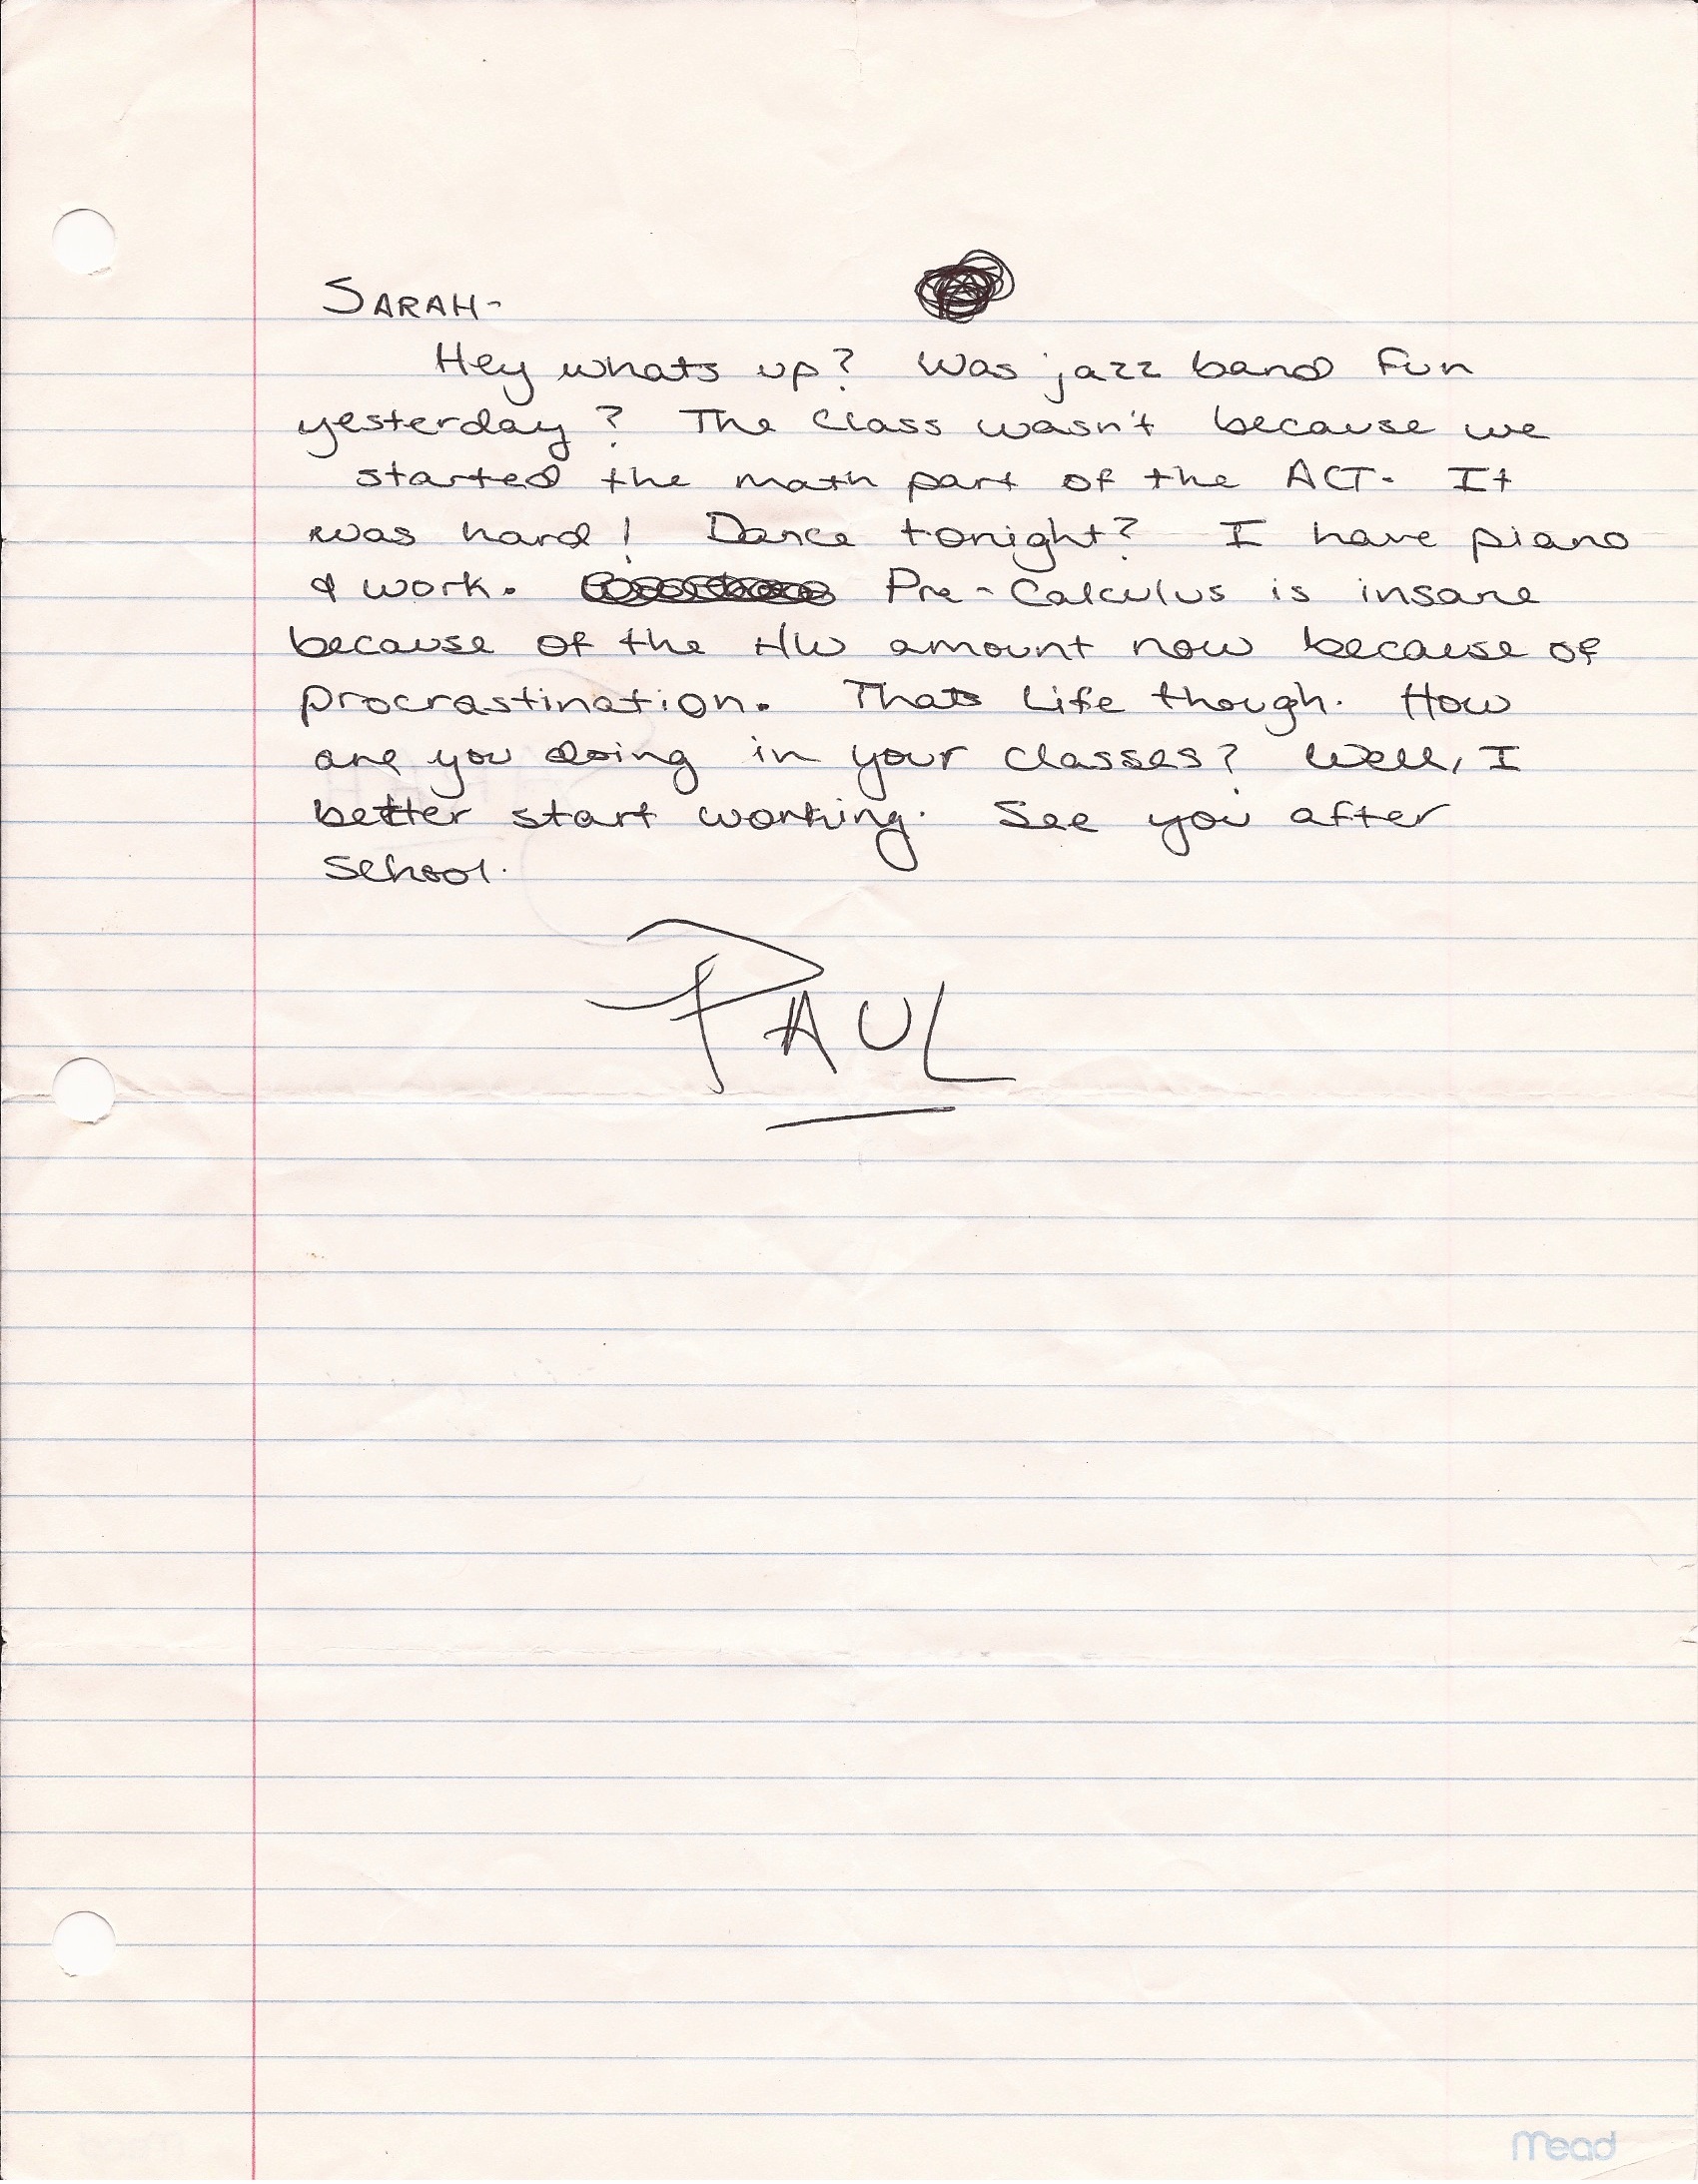 SARAH-
Hey whats up? Was jazz band fun
yesterday? The class wasn't because we
started the math part of the ACT. It
was hard! Dance tonight? I have piano
& work. Pre-Calculus is insane
because of the HW amount now because of
procrastination. Thats life though. How
are you doing in your classes? Well, I
better start working. See you after
school.
PAUL
Mead